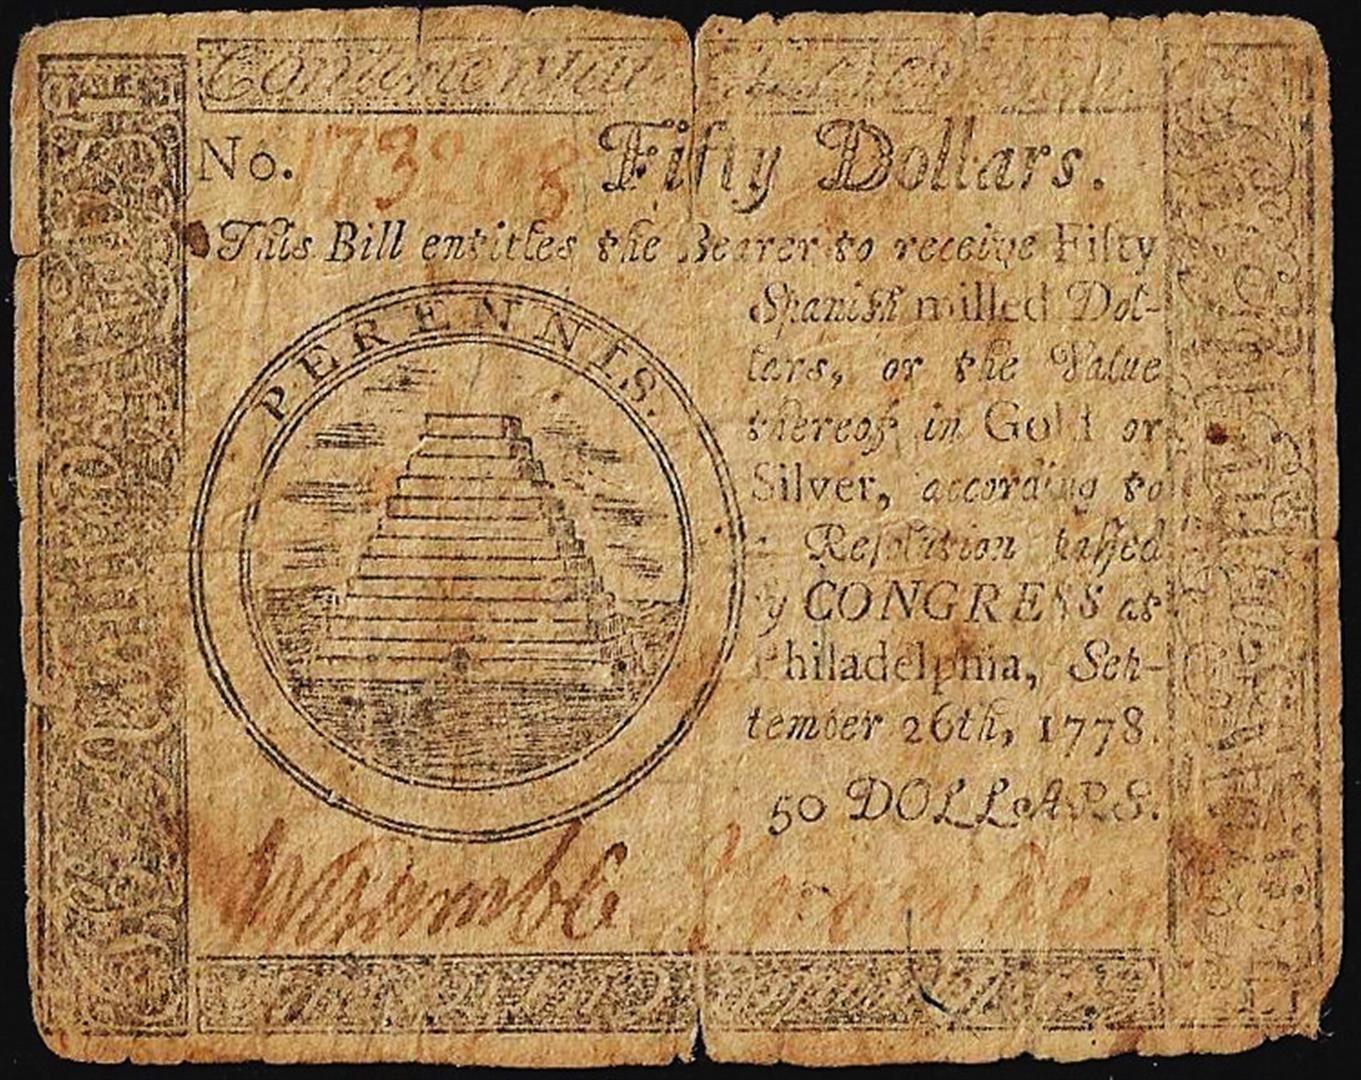 Continental
No. 173203 Fifty Dollars.
This Bill entitles the Bearer to receive Fifty
Spanish milled Dol-
lars, or the Value
thereof in Gold or
Silver, according to
Resolution passed
by CONGRESS at
Philadelphia, Sep-
tember 26th, 1778.
50 DOLLARS.
PERENNIS.